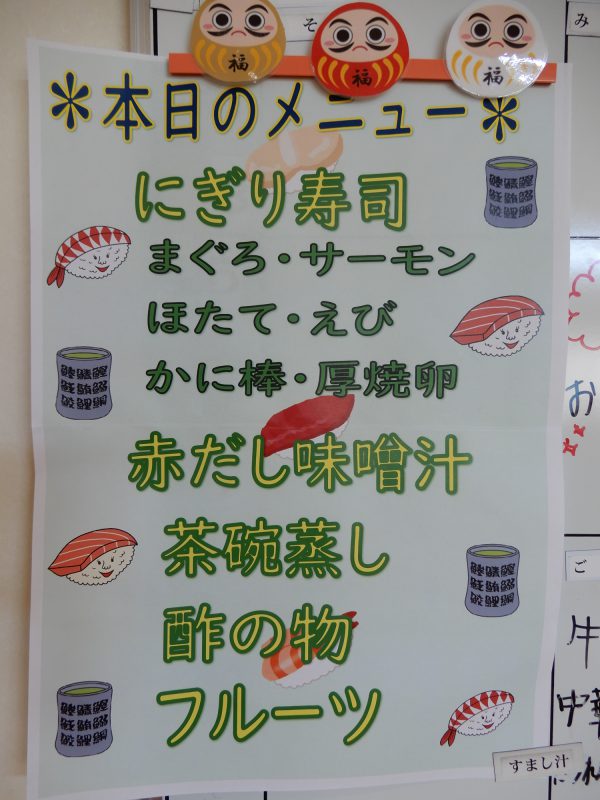 そ
み
福 福 福
＊本日のメニュー＊
にぎり寿司
まぐろ・サーモン
ほたて・えび
かに棒・厚焼卵
赤だし味噌汁
茶碗蒸し
酢の物
フルーツ
お
ご
牛
中華
すまし汁